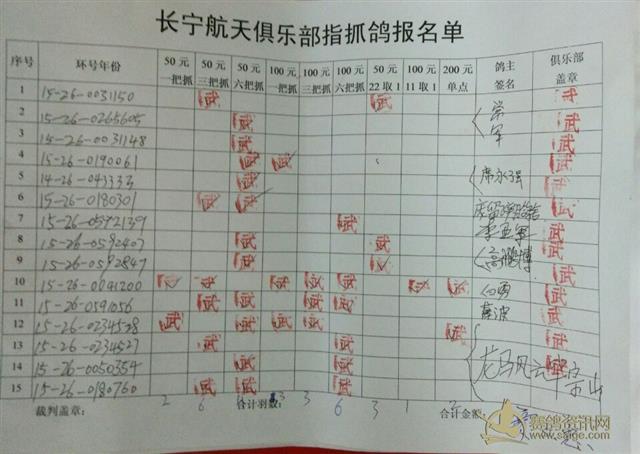 长宁航天俱乐部指抓鸽报名单
序号 环号年份 50元一把抓 50元三把抓 50元六把抓 100元一把抓 100元三把抓 100元六把抓 50元22取1 100元11取1 200元单点 鸽主签名 俱乐部盖章
1 15-26-0031150 武 武 武
2 15-26-0265605 武 武
3 15-26-0031148 武 武
4 15-26-0190061 武 武 武
5 14-26-043333 武 席永强 武
6 15-26-0180301 武 武 武
7 15-26-0592139 武 武
8 15-26-0592407 武 武 武
9 15-26-0592847 武 武 高鹏博 武
10 15-26-0041200 武 武 武 武 武 武 武 武 武
11 15-26-0591056 武 武 武 武 武 武
12 15-26-0234528 武 武 武 武 武 武
13 15-26-0234527 武 武 武
14 15-26-0050354 武 武 武
15 15-26-0180760 武 武 武 武
裁判盖章: 2 6 合计羽数: 3 3 6 3 1 合计金额:
赛鸽资讯网
www.saige.com